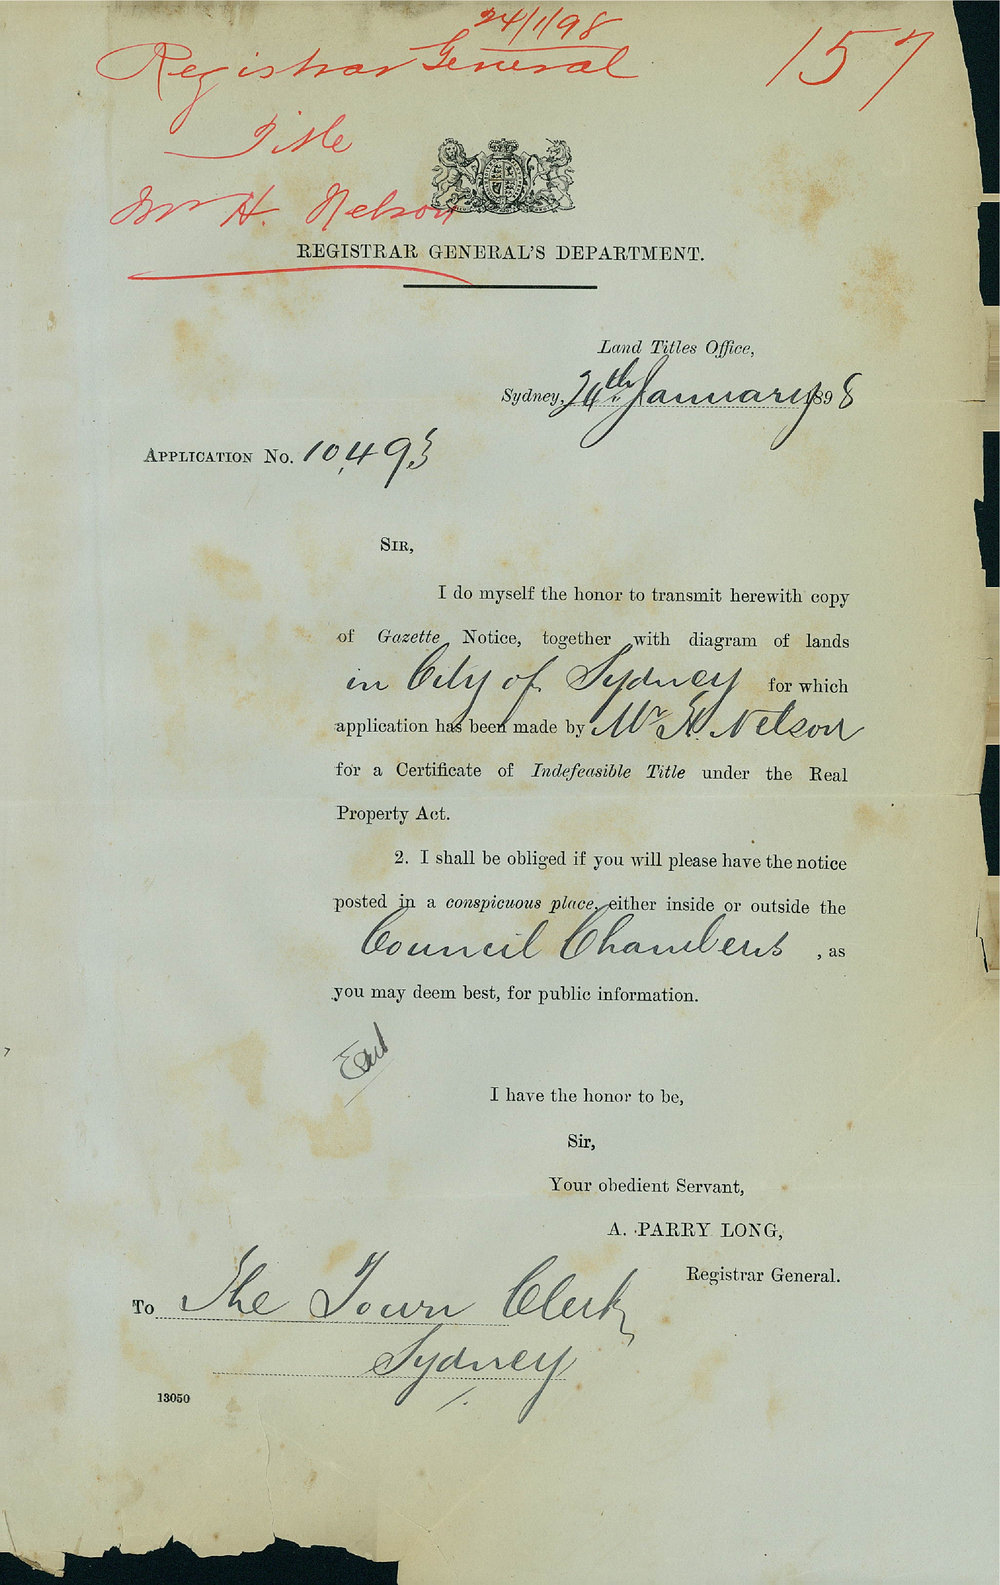 24/1/98
Registrar General
157
Title
Mr H. Nelson
REGISTRAR GENERAL'S DEPARTMENT.
Land Titles Office,
Sydney, 24th January 1898
APPLICATION No. 10,493
SIR,
I do myself the honor to transmit herewith copy
of Gazette Notice, together with diagram of lands
in City of Sydney for which
application has been made by Mr H. Nelson
for a Certificate of Indefeasible Title under the Real
Property Act.
2. I shall be obliged if you will please have the notice
posted in a conspicuous place, either inside or outside the
Council Chambers, as
you may deem best, for public information.
I have the honor to be,
Sir,
Your obedient Servant,
A. PARRY LONG,
Registrar General.
To The Town Clerk
Sydney
13050